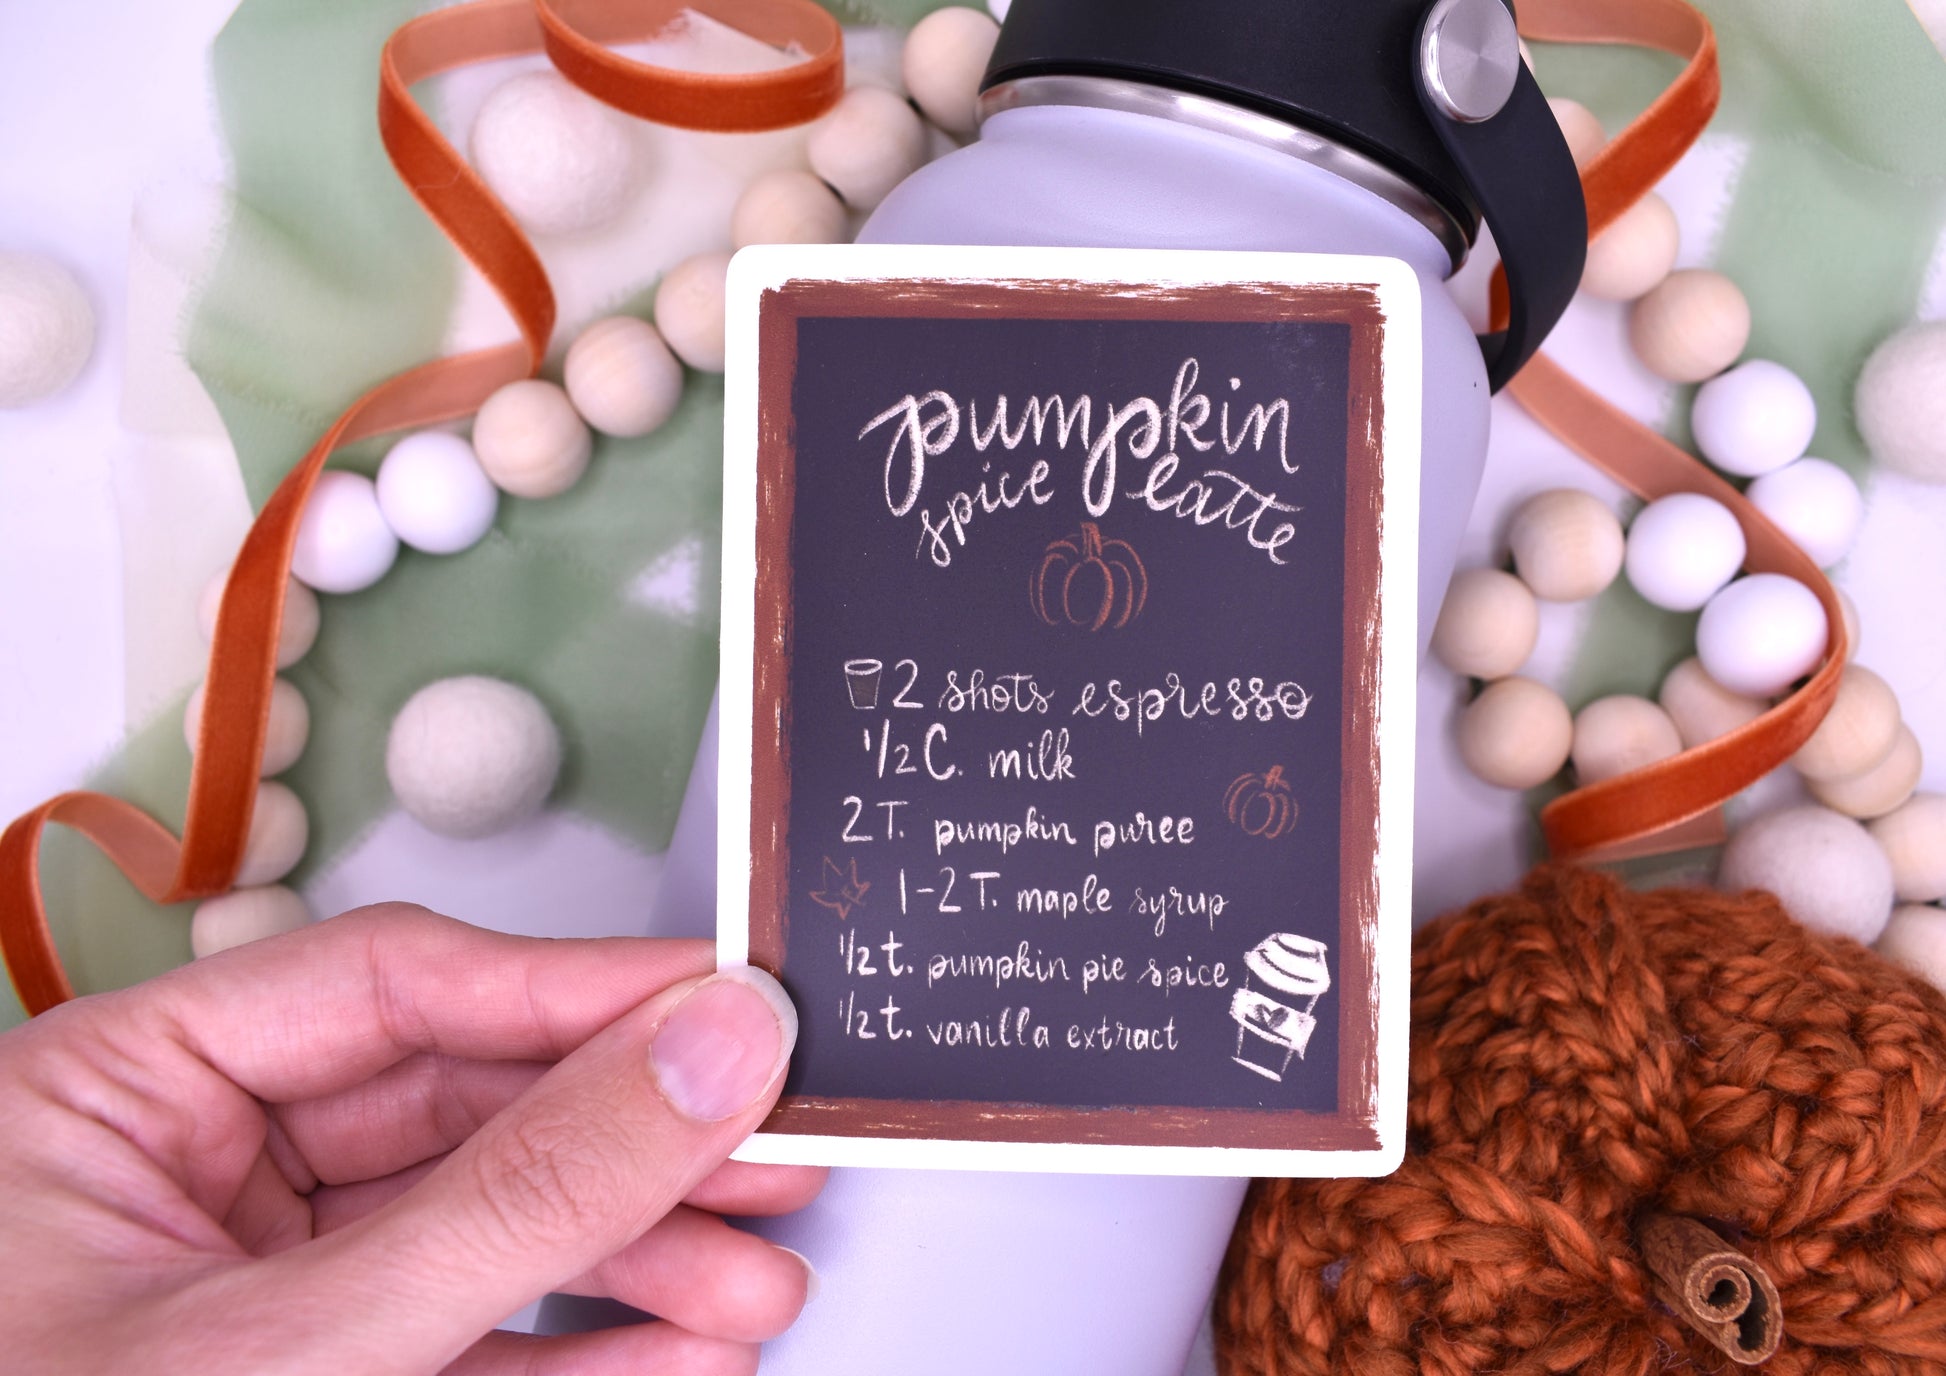 pumpkin
spice latte
2 shots espresso
1/2 C. milk
2 T. pumpkin puree
1-2 T. maple syrup
1/2 t. pumpkin pie spice
1/2 t. vanilla extract